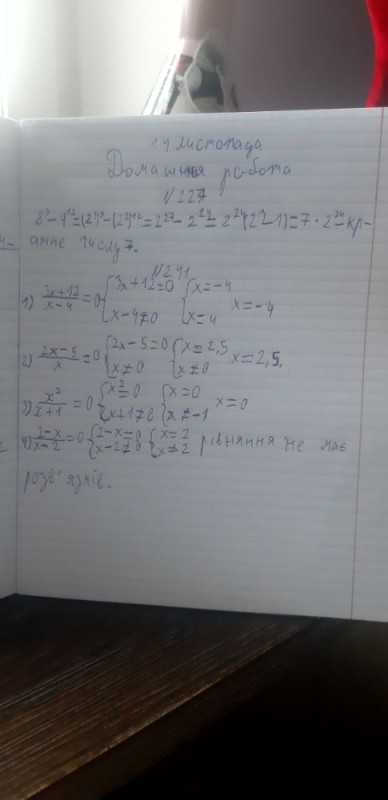 14 листопада
Домашня робота
№227
8⁹-4¹²=(2³)⁹-(2²)¹²=2²⁷-2²⁴=2²⁴(2³-1)=7·2²⁴-кр-
атне числу 7.
№241
1) (3x+12)/(x-4)=0 {3x+12=0 x-4≠0 {x=-4 x=4 x=-4
2) (2x-5)/x=0 {2x-5=0 x≠0 {x=2,5 x≠0 x=2,5.
3) x²/(x+1)=0 {x²=0 x+1≠0 {x=0 x≠-1 x=0
4) (2-x)/(x-2)=0 {2-x=0 x-2≠0 {x=2 x≠2 рівняння не має
розв'язків.